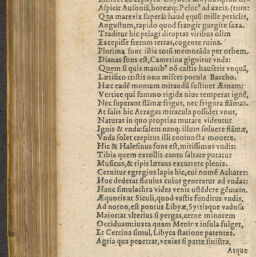 Aspicit Ausonia, boreaq; Pelor⁹ ad axes. (rum:
Qua mare vix superas haud equis mille petricis,
Angustum, rapido quod frangit gurgite saxa.
Traditur hic pelagi diruptas viribus olim
Excepisse fretum terras, cogente ruinn.
Plurima sunt istic totò memoranda per orbem.
Dianæ fons est, Camerina gignitur vnda:
Quem si quis manib⁹ nō castis hauserit vnquā,
Lætifico tristis non miscet pocula Baccho.
Hæc eadē moncem mirandū sustinet Ætnam:
Vertice qui summo rigida niue temperat ignē,
Nec superant flāmæ frigus, nec frigora flāmas.
At salis hic Acragas miracula possidet vnus,
Naturas in quo proprias mutare videntur
Ignis & vnda: salem nanq; illum soluere flāmæ,
Vnda solet crepitus illi coniuncta mouere.
Hic & Halesinus fons est, mitissimus vndis:
Tibia quem extollit cantu saltare putatur
Musicus, & ripis lætans excurrere plenis.
Cernitur egregius lapis hic, cui nomē Achates:
Hoc dederat fluuius cuius generatur ad vndas:
Hanc simulachra vides venis ostēdere gēmam.
Æquoris at Siculi, quod vastis finditur vndis,
Ad noton, est pontus Libyæ, Syrtisque vadosa
Maiorat vlterius si pergas, cerne minorem
Occiduam iuxta quam Menix insula fulget,
Et Cercina simul, Libycę statione patentes.
Agria qua penetrat, venias si parte sinistra,
Atque